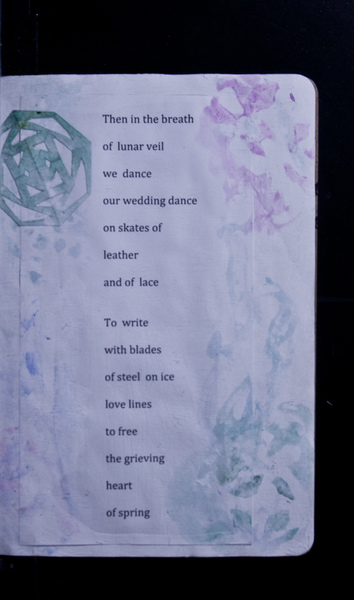 Then in the breath
of lunar veil
we dance
our wedding dance
on skates of
leather
and of lace
To write
with blades
of steel on ice
love lines
to free
the grieving
heart
of spring